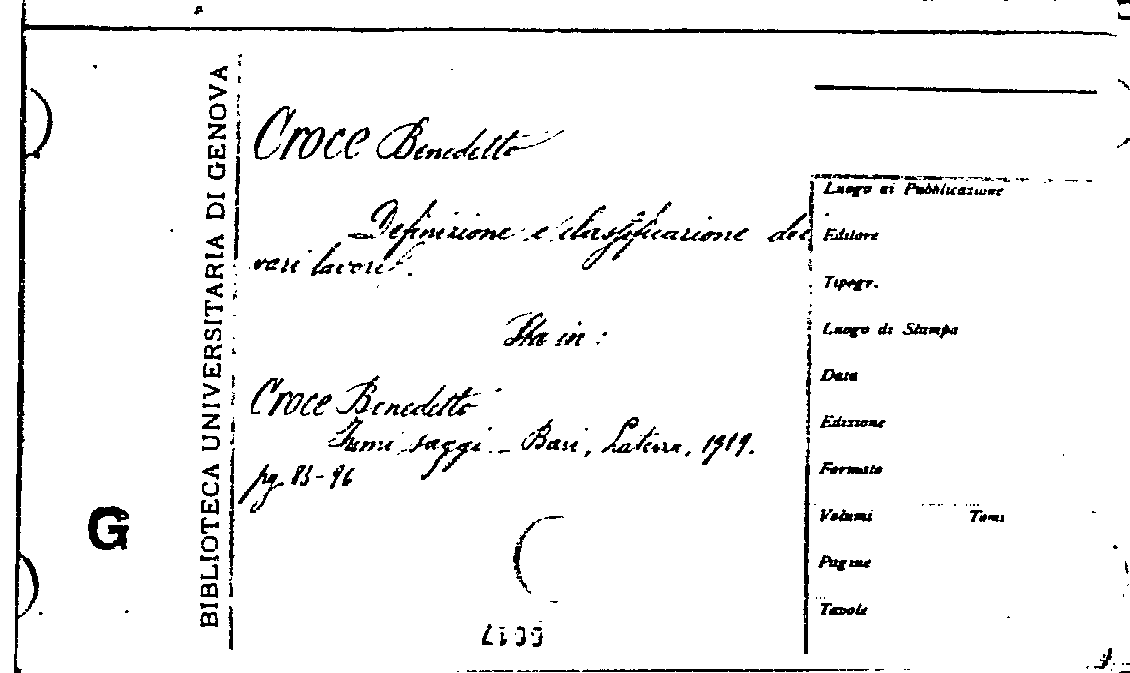 BIBLIOTECA UNIVERSITARIA DI GENOVA
Croce Benedetto
Definizione e classificazione dei
vari lavori
Sta in :
Croce Benedetto
Primi saggi - Bari, Laterza, 1919.
pg. 83-96
G
Luogo di Pubblicazione
Editore
Tipogr.
Luogo di Stampa
Data
Edizione
Formato
Volumi Tomi
Pagine
Tavole